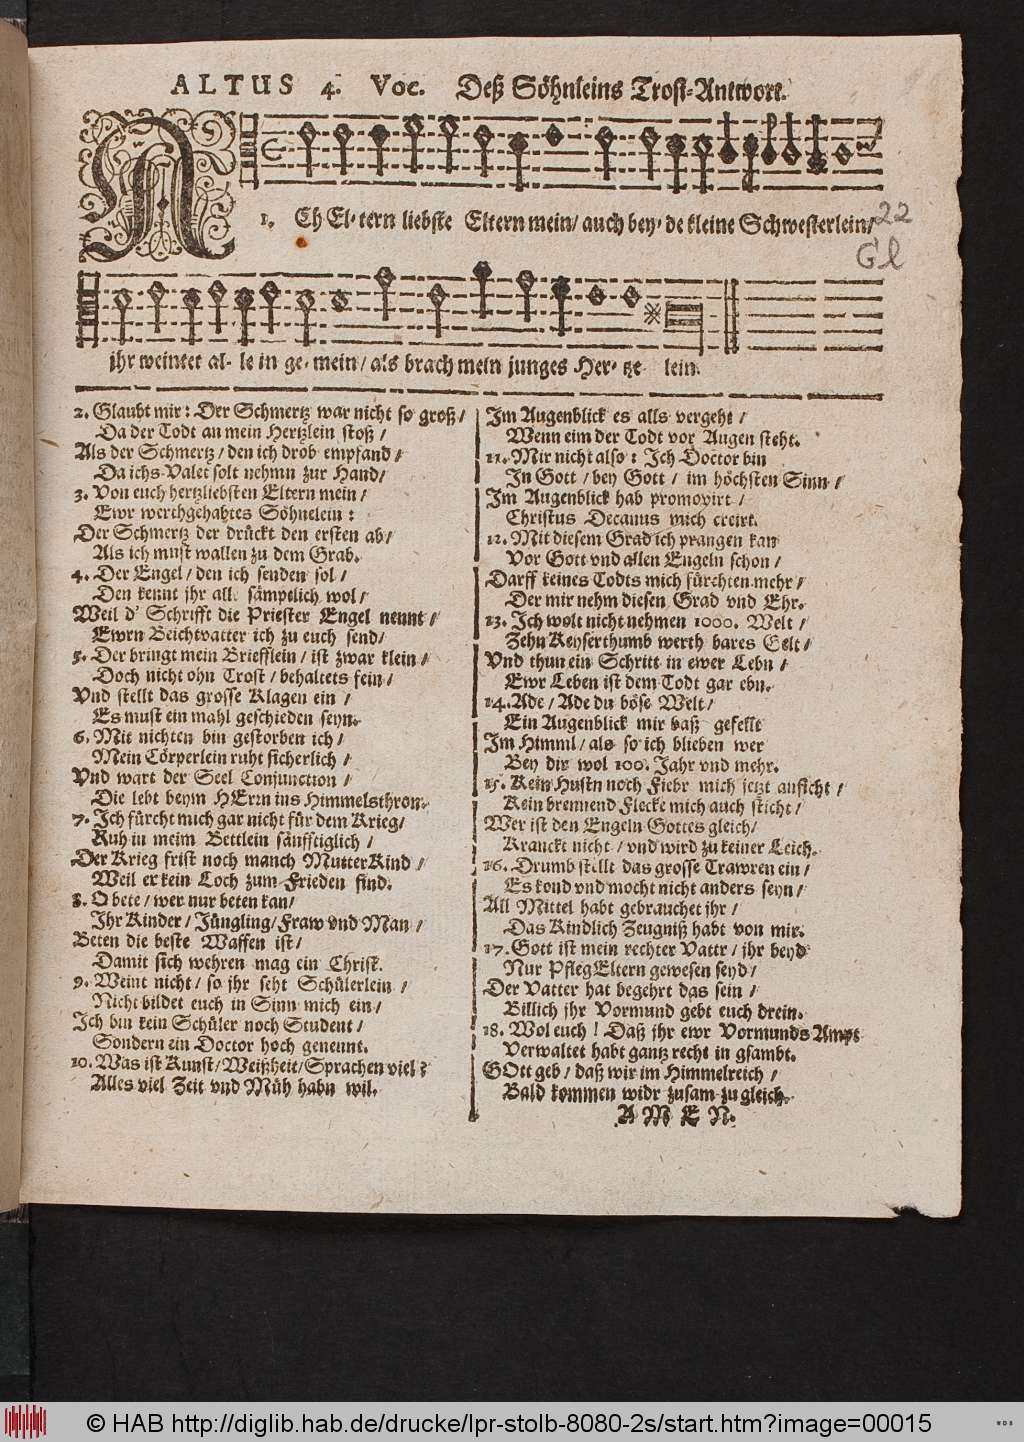 ALTUS 4. Voc. Deß Söhnleins Trost-Antwort.
1. ACh El-tern liebste Eltern mein/ auch bey-de kleine Schwesterlein/
22
Gl
jhr weintet al-le in ge-mein/ als brach mein junges Her-tze lein.
2. Glaubt mir: Der Schmertz war nicht so groß/
Da der Todt an mein Hertzlein stoß/
Als der Schmertz/ den ich drob empfand/
Da ichs Valet solt nehmn zur Hand/
3. Von euch hertzliebsten Eltern mein/
Ewr werthgehabtes Söhnelein:
Der Schmertz der drückt den ersten ab/
Als ich must wallen zu dem Grab.
4. Der Engel/ den ich senden sol/
Den kennt jhr alle sämptlich wol/
Weil d' Schrifft die Priester Engel nennt/
Ewrn Beichtvatter ich zu euch send/
5. Der bringt mein Briefflein/ ist zwar klein/
Doch nicht ohn Trost/ behaltets fein/
Vnd stellt das grosse Klagen ein/
Es must ein mahl geschieden seyn.
6. Mit nichten bin gestorben ich/
Mein Cörperlein ruht sicherlich/
Vnd wart der Seel Conjunction/
Die lebt beym HErrn ins Himmelsthron.
7. Ich fürcht mich gar nicht für dem Krieg/
Ruh in meim Bettlein sänfftiglich/
Der Krieg frist noch manch Mutter Kind/
Weil er kein Loch zum Frieden find.
8. O bete/ wer nur beten kan/
Ihr Kinder/ Jüngling/ Fraw vnd Man/
Beten die beste Waffen ist/
Damit sich wehren mag ein Christ.
9. Weint nicht/ so jhr seht Schülerlein/
Nicht bildet euch in Sinn mich ein/
Ich bin kein Schüler noch Student/
Sondern ein Doctor hoch genennt.
10. Was ist Kunst/ Weißheit/ Sprachen viel?
Alles viel Zeit vnd Müh habn wil.
Im Augenblick es alls vergeht/
Wenn eim der Todt vor Augen steht.
11. Mir nicht also: Ich Doctor bin
In Gott/ bey Gott/ im höchsten Sinn/
Im Augenblick hab promovirt/
Christus Decanus mich creirt.
12. Mit diesem Grad ich prangen kan
Vor Gott vnd allen Engeln schon/
Darff keines Todts mich fürchten mehr/
Der mir nehm diesen Grad vnd Ehr.
13. Ich wolt nicht nehmen 1000. Welt/
Zehn Keyserthumb werth bares Gelt/
Vnd thun ein Schritt in ewer Lebn/
Ewr Leben ist dem Todt gar ebn.
14. Ade/ Ade du böse Welt/
Ein Augenblick mir baß gefellt
Im Himml/ als so ich blieben wer
Bey dir wol 100. Jahr vnd mehr.
15. Kein Hustn noch Fiebr mich jetzt anficht/
Kein brennend Flecke mich auch sticht/
Wer ist den Engeln Gottes gleich/
Kranckt nicht/ vnd wird zu keiner Leich.
16. Drumb stellt das grosse Trawren ein/
Es kond vnd mocht nicht anders seyn/
All Mittel habt gebrauchet jhr/
Das Kindlich Zeugniß habt von mir.
17. Gott ist mein rechter Vattr/ jhr beyd
Nur PflegEltern gewesen seyd/
Der Vatter hat begehrt das sein/
Billich jhr Vormund gebt euch drein.
18. Wol euch! Daß jhr ewr Vormunds Ampt
Verwaltet habt gantz recht in gsambt.
GOtt geb/ daß wir im Himmelreich/
Bald kommen widr zusam zu gleich.
AMEN.
© HAB http://diglib.hab.de/drucke/lpr-stolb-8080-2s/start.htm?image=00015